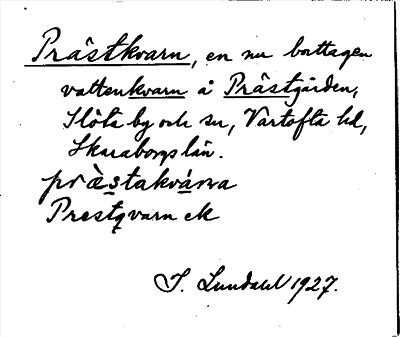 Prästkvarn, en nu borttagen
vattenkvarn å Prästgården,
Slöta by och sn, Vartofta hd,
Skaraborgs län.
præ̀stakvárna
Prestqvarn ek
I. Lundahl 1927.